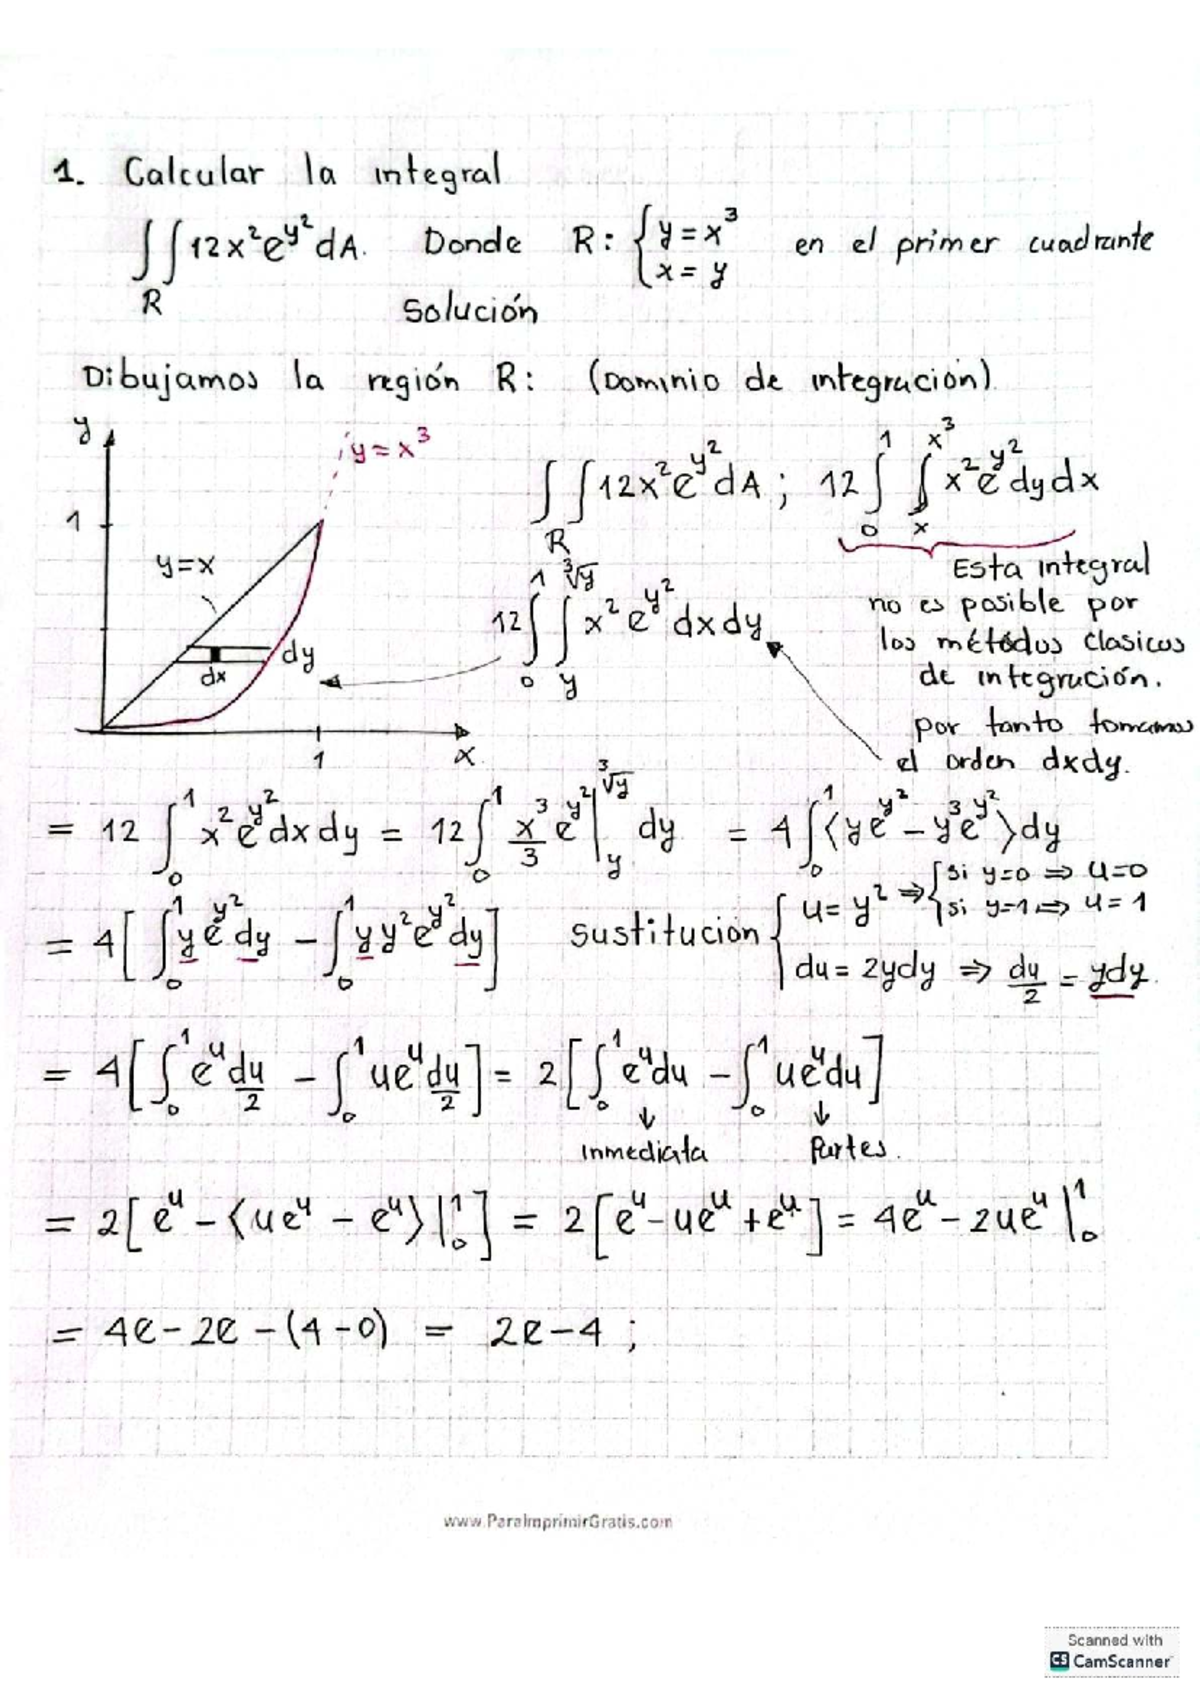 1. Calcular la integral
∬_R 12x²e^{y²} dA. Donde R: { y = x³ ; x = y } en el primer cuadrante
Solución
Dibujamos la región R: (Dominio de integración).
y
y = x³
1
y = x
dy
dx
1
x
∬_R 12x²e^{y²} dA ; 12∫_0^1 ∫_x^{x³} x²e^{y²} dy dx
12∫_0^1 ∫_y^{∛y} x² e^{y²} dx dy
Esta integral
no es posible por
los métodos clasicos
de integración.
por tanto tomamos
el orden dxdy.
= 12 ∫_0^1 x²e^{y²} dx dy = 12∫_0^1 x³/3 e^{y²} |_y^{∛y} dy = 4∫_0^1 (ye^{y²} - y³e^{y²}) dy
= 4[∫_0^1 y e^{y²} dy - ∫_0^1 y y² e^{y²} dy] sustitución { u = y² ⇒ { si y=0 ⇒ u=0 ; si y=1 ⇒ u=1
du = 2ydy ⇒ du/2 = ydy.
= 4[∫_0^1 e^u du/2 - ∫_0^1 ue^u du/2] = 2[∫_0^1 e^u du - ∫_0^1 ue^u du]
↓ ↓
inmediata Partes.
= 2[e^u - (ue^u - e^u)|_0^1] = 2[e^u - ue^u + e^u] = 4e^u - 2ue^u |_0^1
= 4e - 2e - (4 - 0) = 2e - 4 ;
www.ParaImprimirGratis.com
Scanned with
CS CamScanner